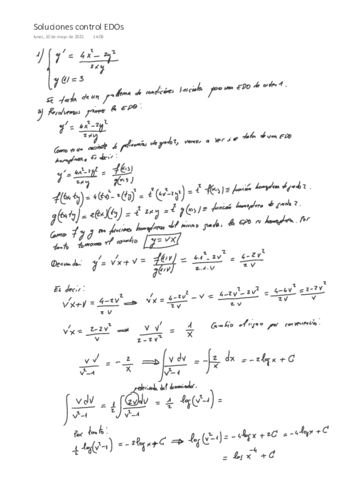 Soluciones control EDOs
lunes, 23 de mayo de 2022 14:08
1) { y' = 4x² - 2y² / 2xy
y(1) = 3
Se trata de un problema de condiciones iniciales para una EDO de orden 1.
Resolvemos primero la EDO:
y' = 4x² - 2y² / 2xy
Como es un cociente de polinomios de grado 2, vamos a ver si se trata de una EDO
homogénea. Es decir:
y' = 4x² - 2y² / 2xy = f(x,y) / g(x,y)
f(tx,ty) = 4(tx)² - 2(ty)² = t² (4x² - 2y²) = t² f(x,y) ⇒ función homogénea de grado 2.
g(tx,ty) = 2(tx)(ty) = t² 2xy = t² g(x,y) ⇒ función homogénea de grado 2.
Como f y g son funciones homogéneas del mismo grado, la EDO es homogénea. Por
tanto hacemos el cambio y = vx
Derivando: y' = v'x + v = f(1,v) / g(1,v) = 4·1² - 2v² / 2·1·v = 4 - 2v² / 2v
Es decir:
v'x + v = 4 - 2v² / 2v ⇒ v'x = 4 - 2v² / 2v - v = 4 - 2v² - 2v² / 2v = 4 - 4v² / 2v = 2 - 2v² / v
v'x = 2 - 2v² / v ⇒ v v' / 2 - 2v² = 1 / x Cambio el signo por conveniencia:
v v' / v² - 1 = - 2 / x ⇒ ∫ v dv / v² - 1 = - ∫ 2 / x dx = -2 log x + C
derivada del denominador.
∫ v dv / v² - 1 = 1/2 ∫ 2v dv / v² - 1 = 1/2 log(v² - 1) =
Por tanto:
1/2 log(v² - 1) = -2 log x + C ⇒ log(v² - 1) = -4 log x + 2C = -4 log x + C
= log x⁻⁴ + C